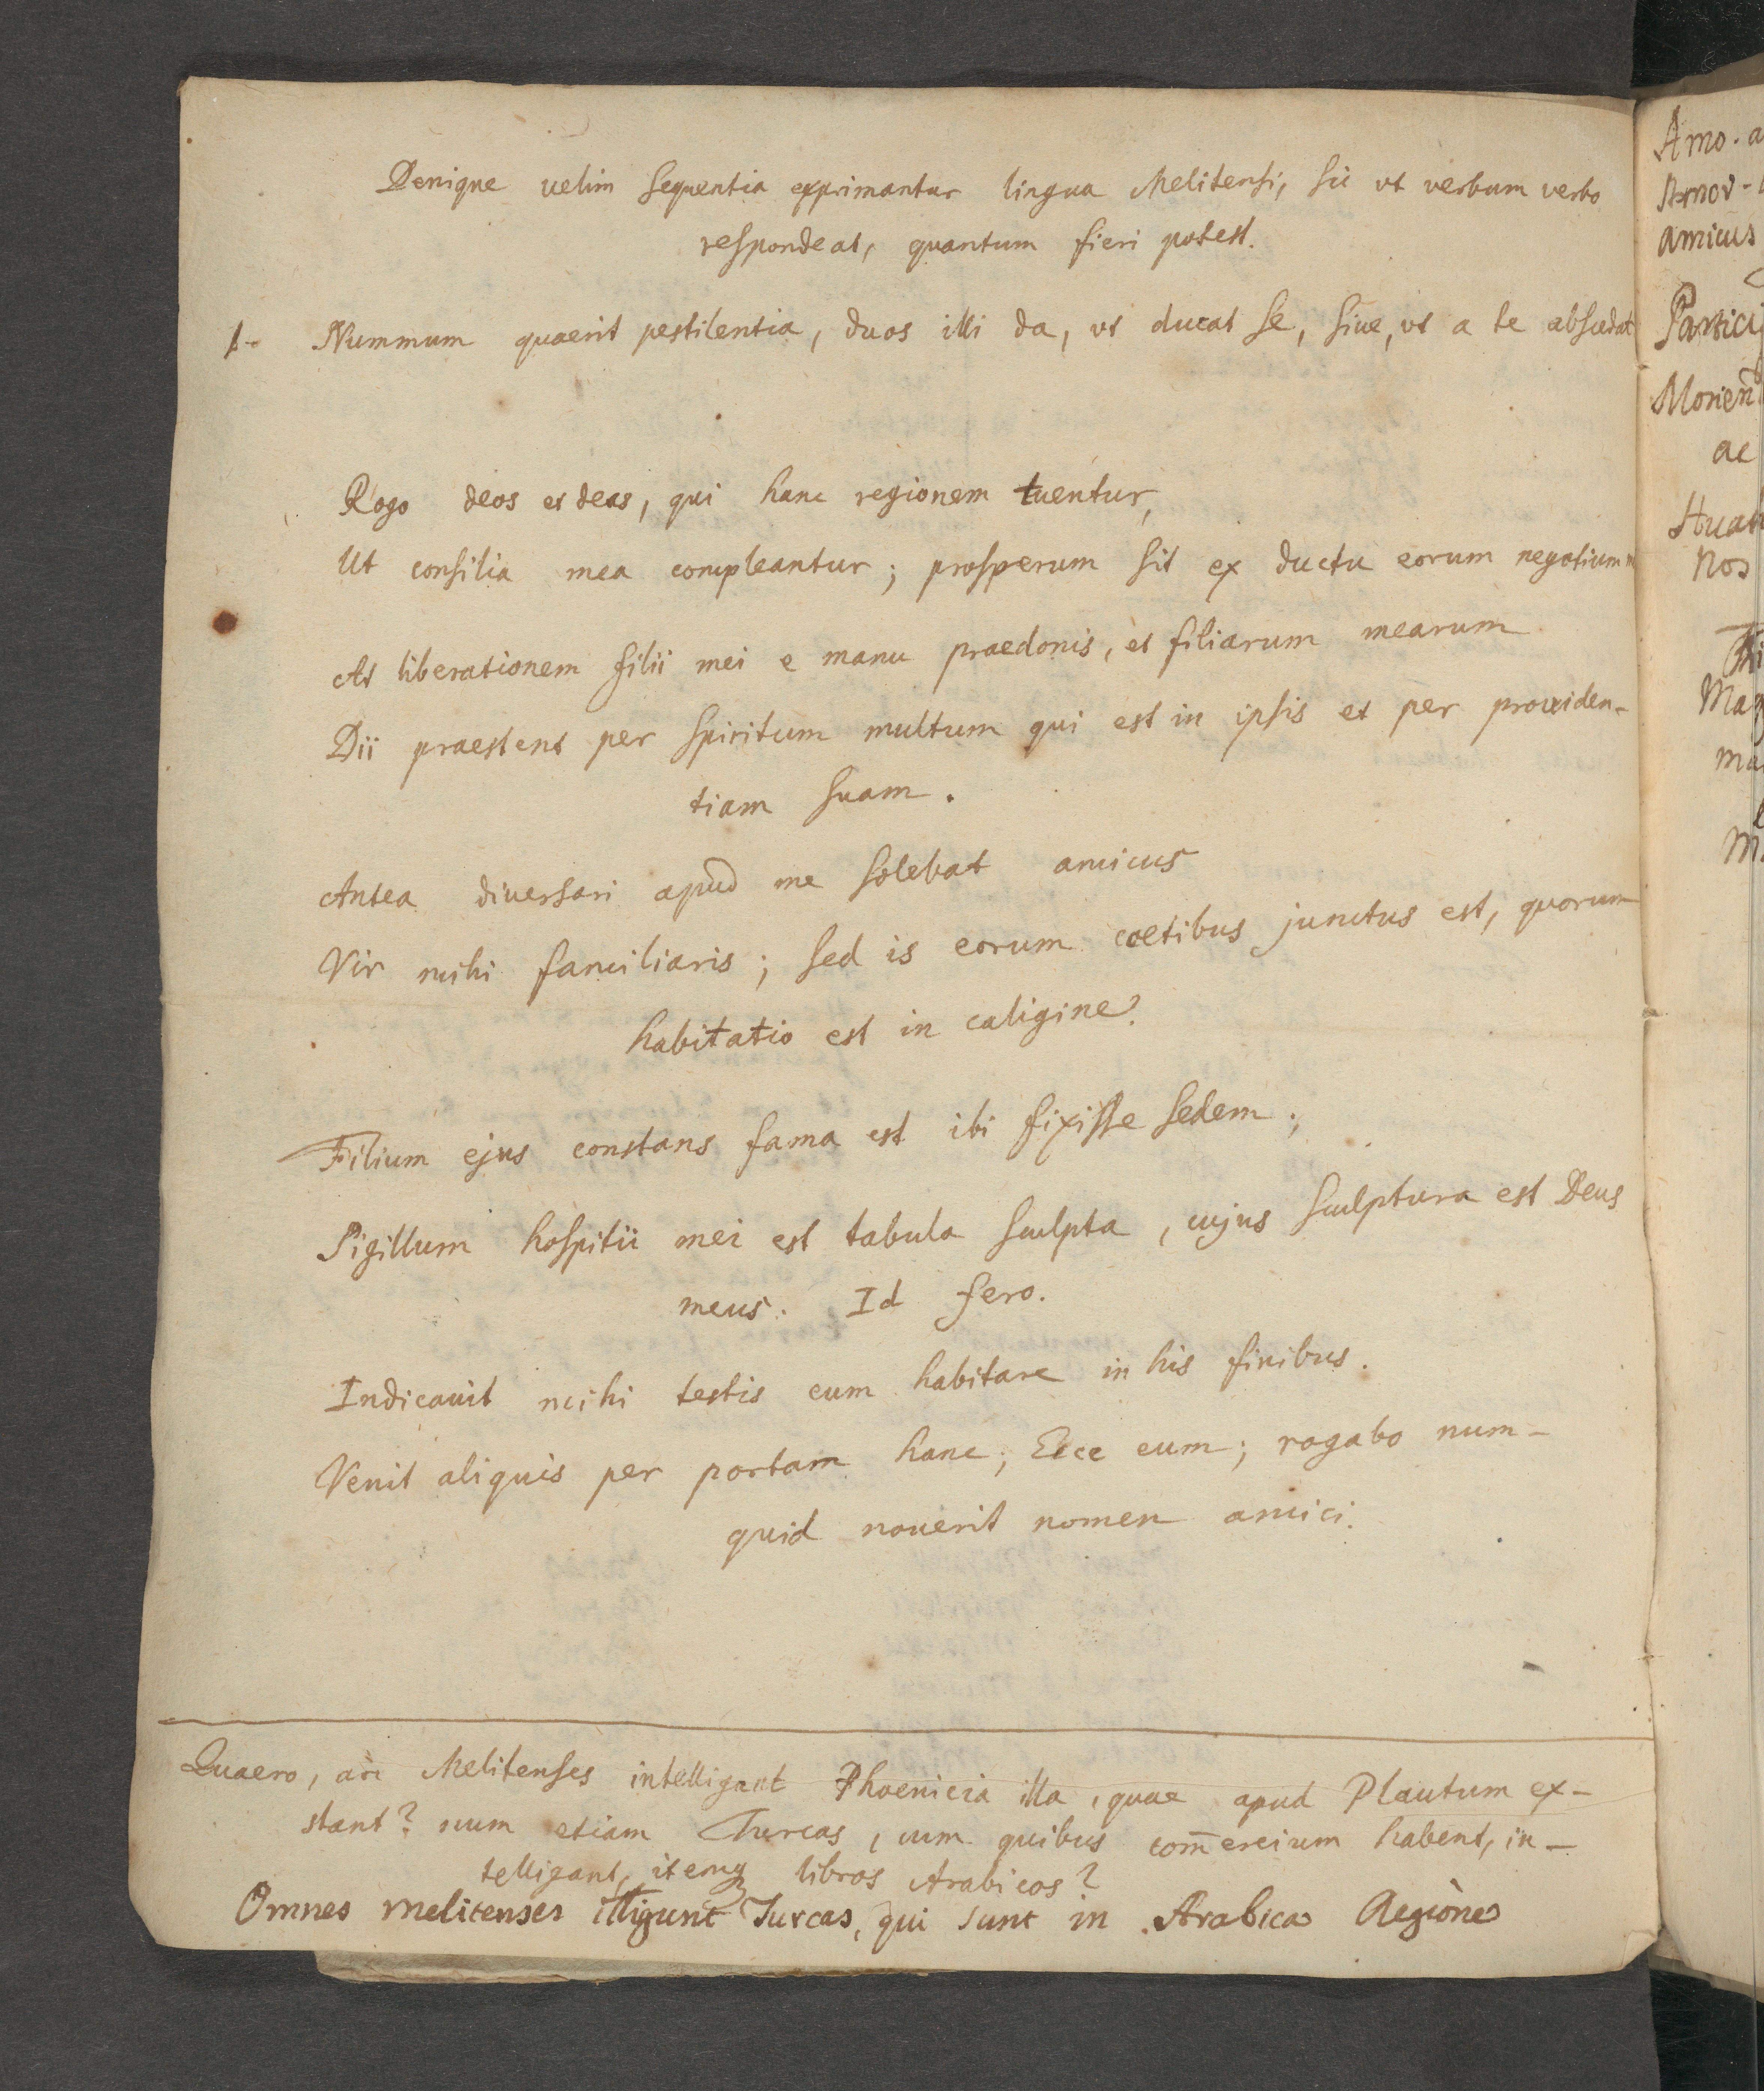 Denique uelim sequentia exprimantur lingua Melitensi, sic vt verbum verbo
respondeat, quantum fieri potest.
1. Nummum quaerit pestilentia, duos illi da, vt ducat se, siue, vt a te abscedat
Rogo deos et deas, qui hanc regionem tuentur,
Ut consilia mea compleantur; prosperum sit ex ductu eorum negotium
At liberationem filii mei e manu praedonis, et filiarum mearum
Dii praestent per spiritum multum qui est in ipsis et per prouiden-
tiam suam.
Antea diuersari apud me solebat amicus
Vir mihi familiaris; sed is eorum coetibus junctus est, quorum
habitatio est in caligine.
Filium ejus constans fama est ibi fixisse sedem;
Sigillum hospitii mei est tabula sculpta, cujus sculptura est Deus
meus. Id fero.
Indicauit mihi testis eum habitare in his finibus.
Venit aliquis per portam hanc; Ecce eum; rogabo num-
quid nouerit nomen amici.
Quaero, an Melitenses intelligant Phoenicia illa, quae apud Plautum ex-
stant? num etiam Turcas, cum quibus com̄ercium habent, in-
telligant, itemq libros Arabicos?
Omnes melitenses itligunt Turcas, qui sunt in Arabica Regione
Amo. a
Amor-
amicus
Partici
Morien
ac
Huat
Nos
Mag
ma